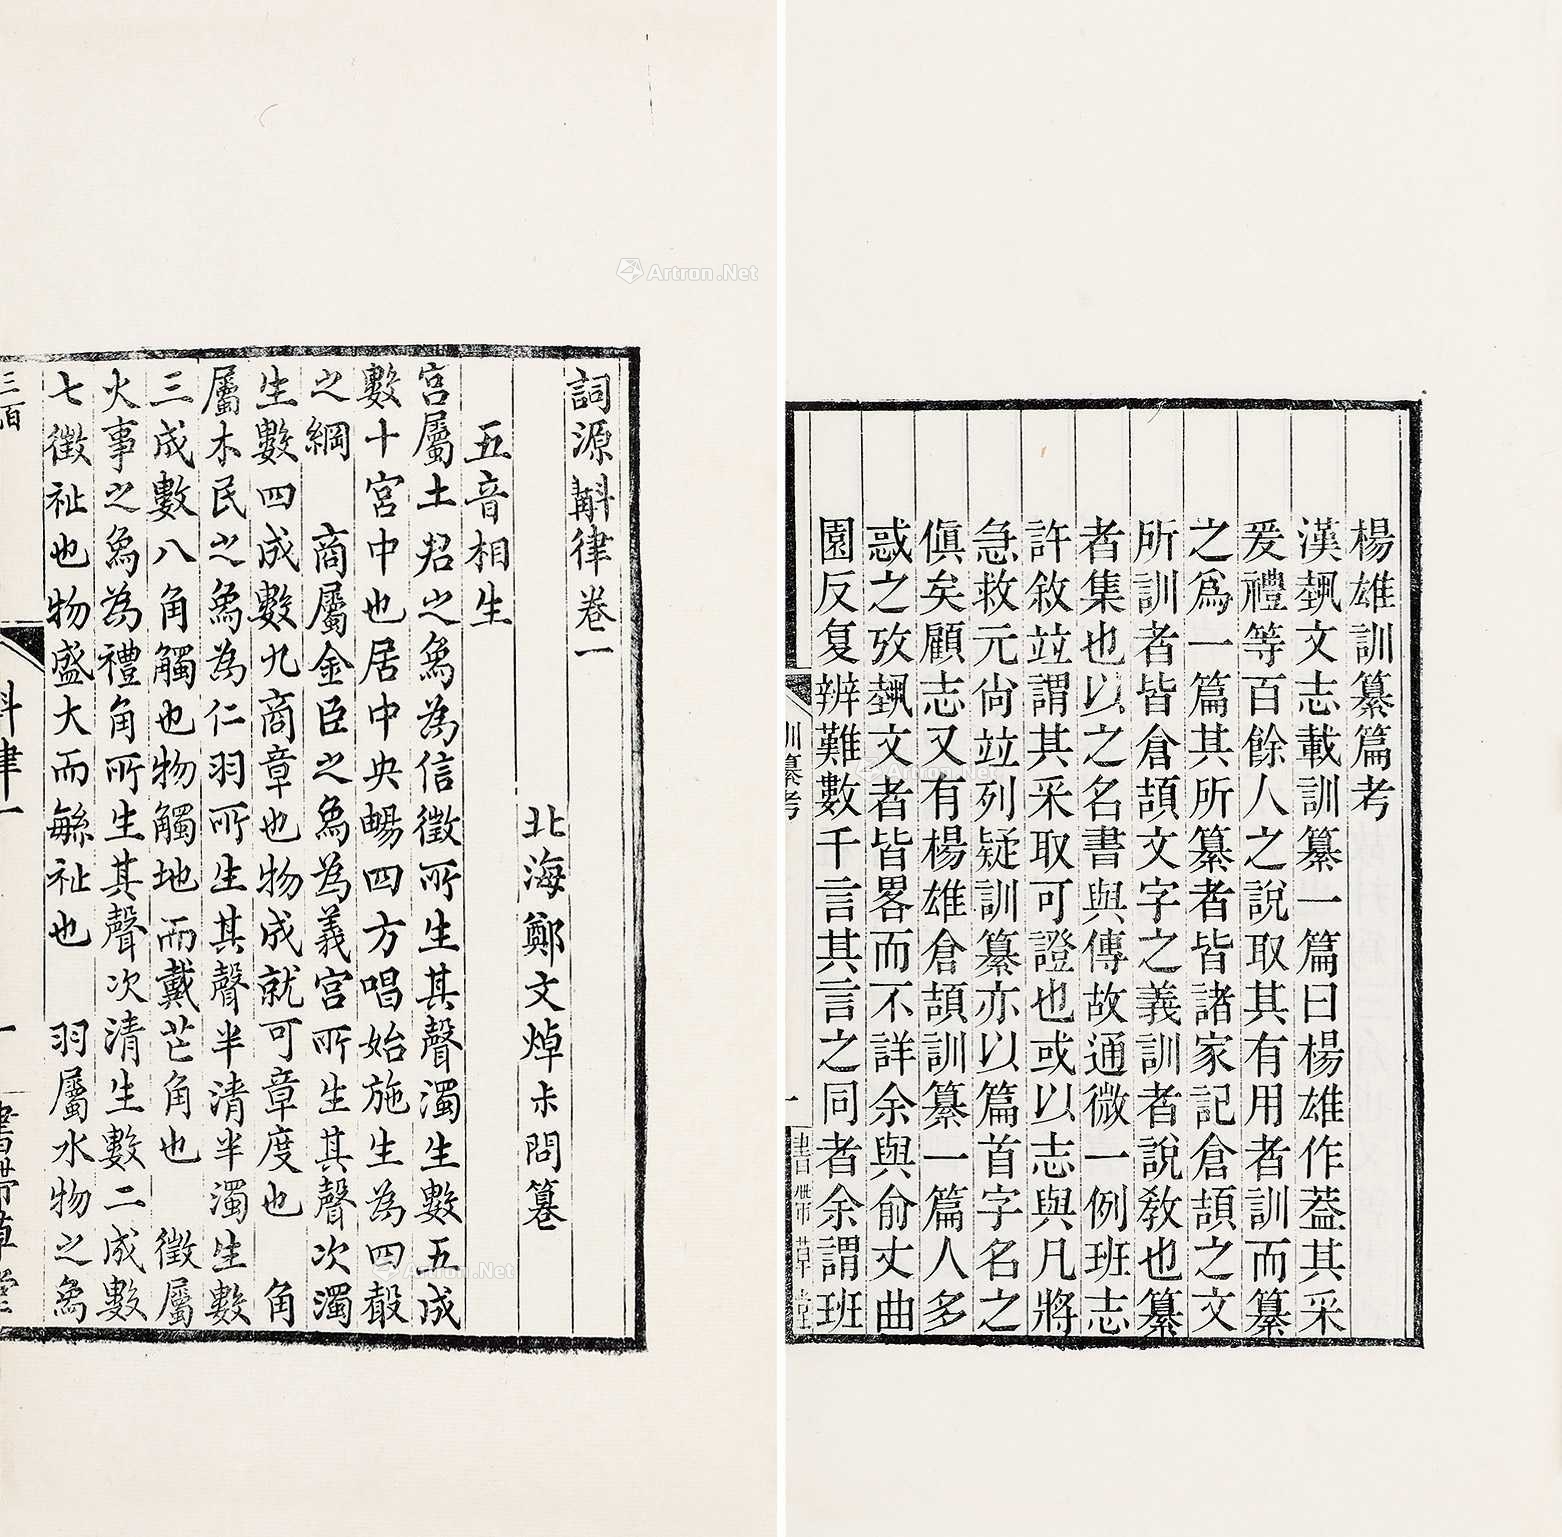 楊雄訓纂篇考
漢蓺文志載訓纂一篇曰楊雄作葢其采
爰禮等百餘人之說取其有用者訓而纂
之爲一篇其所纂者皆諸家記倉頡之文
所訓者皆倉頡文字之義訓者說敎也纂
者集也以之名書與傳故通微一例班志
許敘竝謂其采取可證也或以志與凡將
急救元尙竝列疑訓纂亦以篇首字名之
傎矣顧志又有楊雄倉頡訓纂一篇人多
惑之攷蓺文者皆畧而不詳余與俞丈曲
園反复辨難數千言其言之同者余謂班
訓纂考 一 書帶草堂
詞源斠律卷一
北海鄭文焯未問篹
五音相生
宮屬土君之爲為信徵所生其聲濁生數五成
數十宮中也居中央暢四方唱始施生為四聲
之綱 商屬金臣之爲為義宮所生其聲次濁
生數四成數九商章也物成就可章度也 角
屬木民之爲為仁羽所生其聲半清半濁生數
三成數八角觸也物觸地而戴芒角也 徵屬
火事之爲為禮角所生其聲次清生數二成數
七徵祉也物盛大而緐祉也 羽屬水物之爲
斠律一 一 書帶草堂
Artron.Net
Artron.Net
Artron.Net